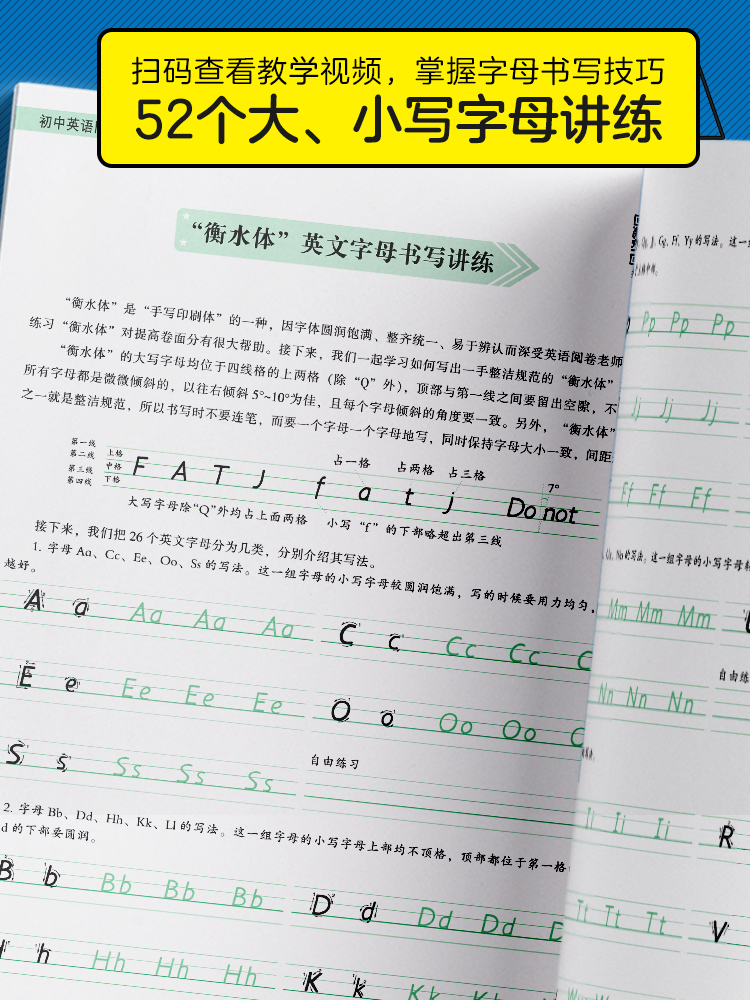 扫码查看教学视频，掌握字母书写技巧
52个大、小写字母讲练
初中英语
“衡水体”英文字母书写讲练
“衡水体”是“手写印刷体”的一种，因字体圆润饱满、整齐统一、易于辨认而深受英语阅卷老师
练习“衡水体”对提高卷面分有很大帮助。接下来，我们一起学习如何写出一手整洁规范的“衡水体”
“衡水体”的大写字母均位于四线格的上两格（除“Q”外），顶部与第一线之间要留出空隙，不
所有字母都是微微倾斜的，以往右倾斜 5°~10°为佳，且每个字母倾斜的角度要一致。另外，“衡水体”
之一就是整洁规范，所以书写时不要连笔，而要一个字母一个字母地写，同时保持字母大小一致，间距
第一线
第二线
第三线
第四线
上格
中格
下格
占一格 占两格 占三格
7°
F A T J f a t j Do not
大写字母除“Q”外均占上面两格 小写“f”的下部略超出第三线
接下来，我们把 26 个英文字母分为几类，分别介绍其写法。
1. 字母 Aa、Cc、Ee、Oo、Ss 的写法。这一组字母的小写字母较圆润饱满，写的时候要用力均匀，
越好。
A a Aa Aa Aa C c Cc Cc C
E e Ee Ee Ee O o Oo Oo
S s Ss Ss Ss 自由练习
2. 字母 Bb、Dd、Hh、Kk、Ll 的写法。这一组字母的小写字母上部均不顶格，顶部都位于第一格
d 的下部要圆润。
B b Bb Bb Bb D d Dd Dd D
h Hh Hh Hh K k Kk Kk
Gg、Ff、Yy 的写法。这一
Pp Pp Pp
Jj Jj
Ff Ff Ff
Nn 的写法。这一组字母的小写字母
Mm Mm Mm
自由练
Nn Nn Nn
Ii Ii R
Tt Tt Tt V